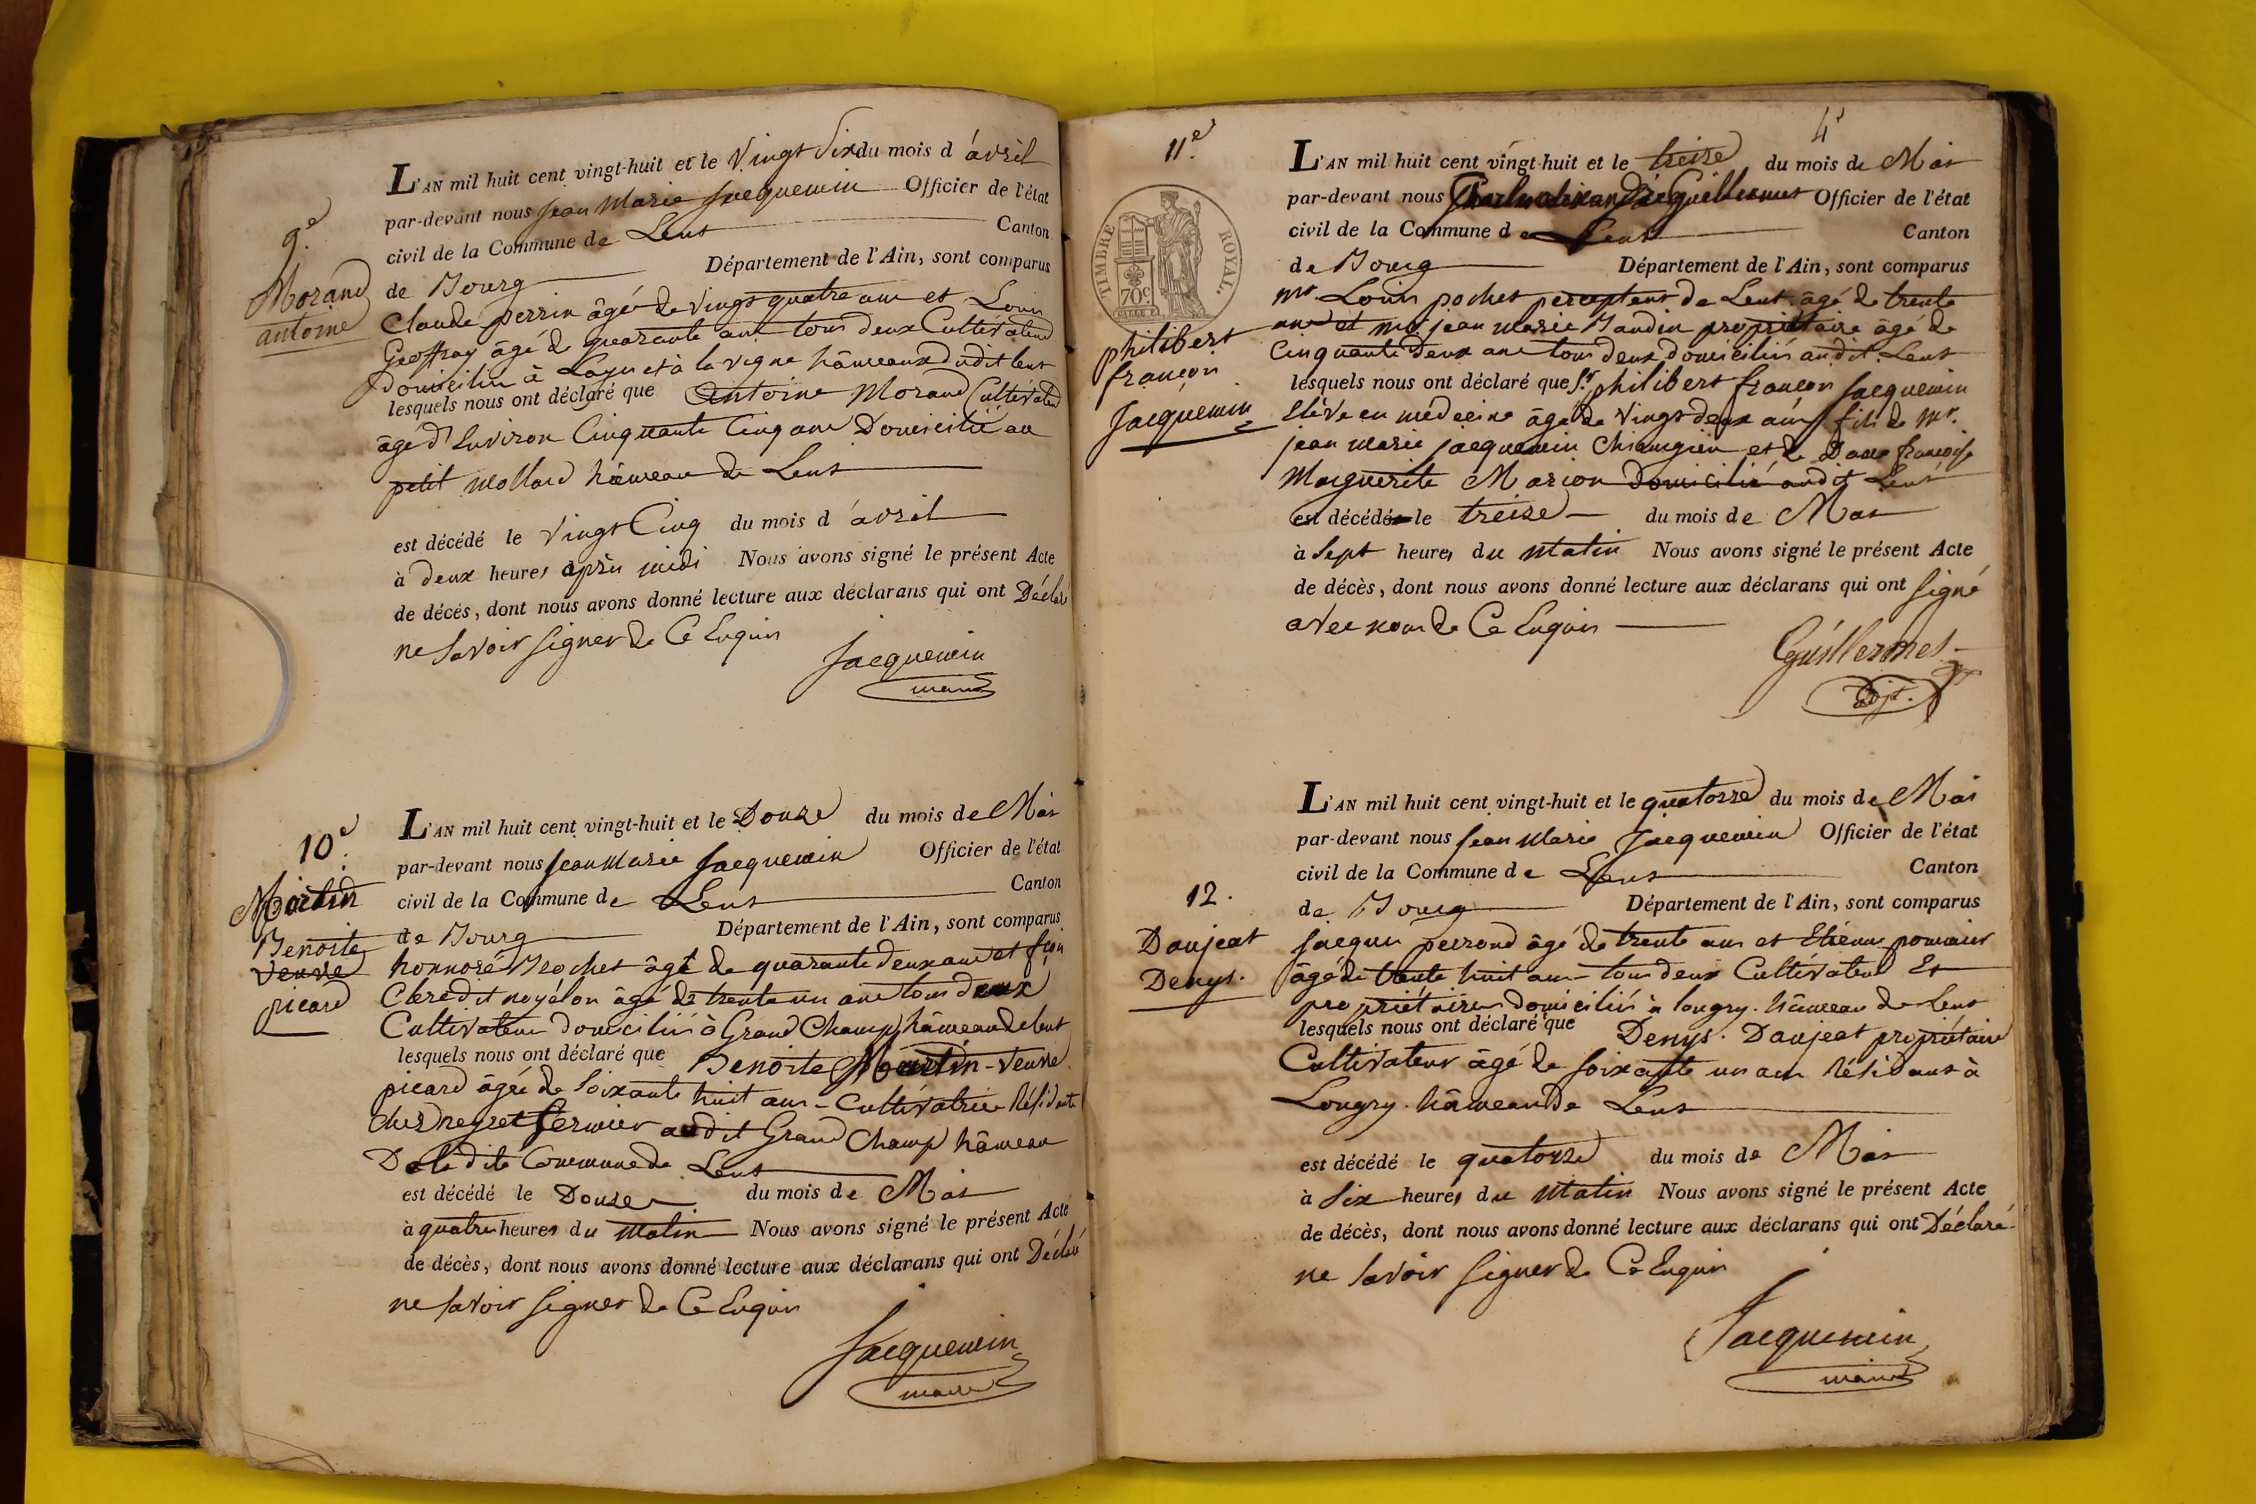 9.e
Morand
antoine
L'AN mil huit cent vingt-huit et le Vingt Six du mois d'avril
par-devant nous jean Marie Jacquemin Officier de l'état
civil de la Commune de Lent Canton
de Bourg Département de l'Ain, sont comparus
Claude perrin âgé de vingt quatre ans et Louis
Geoffray âgé de quarante ans tous deux Cultivateurs
domiciliés à et à la vigne hâmeaux dudit lent
lesquels nous ont déclaré que Antoine Morand Cultivateur
âgé d'Environ Cinquante Cinq ans Domicilié au
petit mollard hâmeau de Lent
est décédé le vingt Cinq du mois d'avril
à deux heures après midi Nous avons signé le présent Acte
de décès, dont nous avons donné lecture aux déclarans qui ont Déclaré
ne Savoir Signer de Ce Enquis
Jacquemin
maire
10.e
Martin
Benoite
veuve
picard
L'AN mil huit cent vingt-huit et le Douze du mois de Mai
par-devant nous jean Marie Jacquemin Officier de l'état
civil de la Commune de Lent Canton
de Bourg Département de l'Ain, sont comparus
honnoré Brochet âgé de quarante deux ans et
Clere dit noyélon âgé de trente un ans tous deux
Cultivateurs domiciliés à Grand Champ hâmeau de lent
lesquels nous ont déclaré que Benoite Martin - veuve
picard âgée de Soixante huit ans - Cultivatrice Résidante
chez neyret fermier audit Grand Champ hâmeau
De la dite Commune de Lent
est décédé le Douze du mois de Mai
à quatre heures du matin Nous avons signé le présent Acte
de décès, dont nous avons donné lecture aux déclarans qui ont Déclaré
ne Savoir Signer de Ce Enquis
Jacquemin
maire
4
11.e
TIMBRE ROYAL
70c
philibert
françois
Jacquemin
L'AN mil huit cent vingt-huit et le treize du mois de Mai
par-devant nous Guillermet Officier de l'état
civil de la Commune de Lent Canton
de Bourg Département de l'Ain, sont comparus
Mr. Louis pochet percepteur de Lent âgé de trente
ans et Mr jean marie Baudin propriétaire âgé de
Cinquante deux ans tous deux domiciliés audit Lent
lesquels nous ont déclaré que Sr philibert françois Jacquemin
Elève en médecine âgé de vingt deux ans fils de Mr.
jean marie jacquemin Chirurgien et de Dame françoise
Marguerite Marion domicilié audit Lent
est décédé le treize du mois de Mai
à Sept heures du matin Nous avons signé le présent Acte
de décès, dont nous avons donné lecture aux déclarans qui ont Signé
avec nous de Ce Enquis
Guillermet
adjt.
12.
Daujeat
Denys.
L'AN mil huit cent vingt-huit et le quatorze du mois de Mai
par-devant nous jean Marie Jacquemin Officier de l'état
civil de la Commune de Lent Canton
de Bourg Département de l'Ain, sont comparus
Jacques perrond âgé de trente ans et Etienne pomier
âgé de trente huit ans - tous deux Cultivateurs Et
propriétaires domiciliés à longry. hâmeau de Lent
lesquels nous ont déclaré que Denys. Daujeat propriétaire
Cultivateur âgé de soixante un ans Résidant à
Longry. hâmeau de Lent
est décédé le quatorze du mois de Mai
à Six heures du Matin Nous avons signé le présent Acte
de décès, dont nous avons donné lecture aux déclarans qui ont Déclaré
ne Savoir Signer de Ce Enquis
Jacquemin
maire